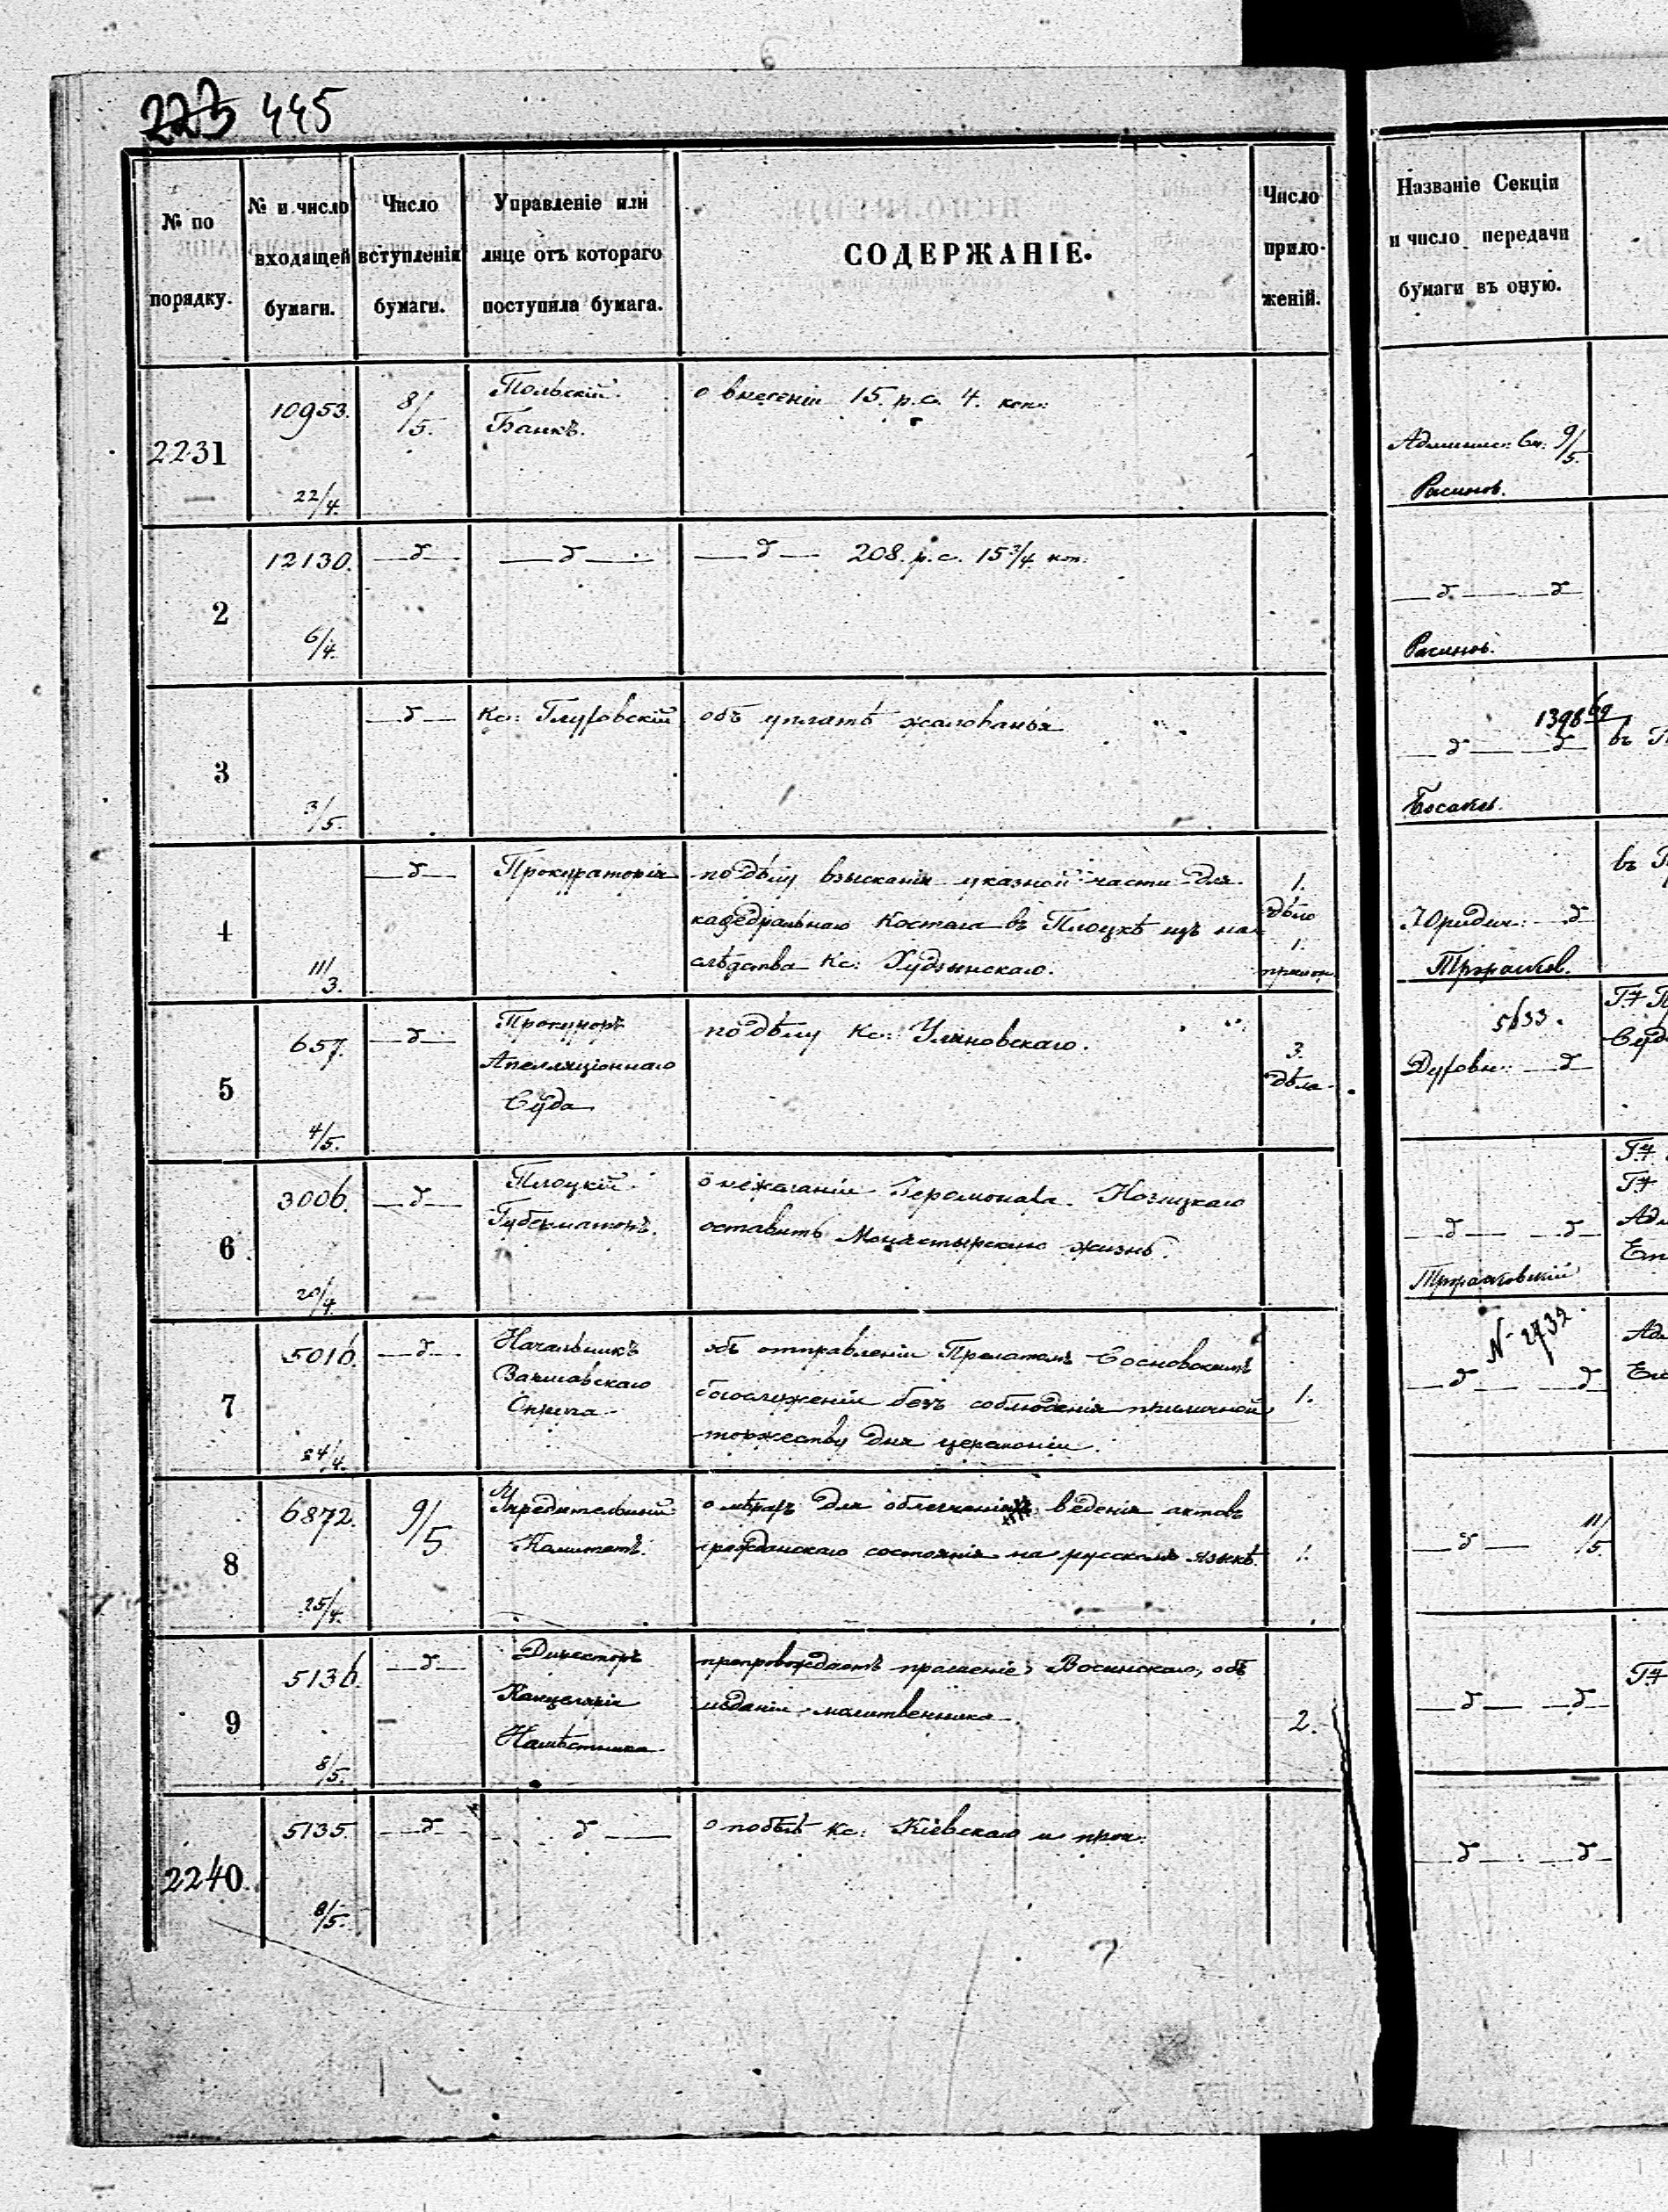 223 445
№ по порядку.
№ и число входящей бумаги.
Число вступленія бумаги.
Управленіе или лице отъ котораго поступила бумага.
СОДЕРЖАНІЕ.
Число приложеній.
Названіе Секціи и число передачи бумаги въ оную.
2231
10953.
22/4.
8/5.
Польскій
Банкъ.
о внесеніи 15. р.с. 4. коп:
Админис: Ск: 9/5.
2
12130.
6/4.
—д—
—д—
—д— 208. р.с. 15 3/4 коп:
—д— —д—
3
3/5.
—д—
Кс: Глуховскій
объ уплатѣ жалованья
1398 69
—д— —д—
въ
4
11/3.
—д—
Прокураторія
по дѣлу взысканія указной части для
кафедральнаго Костела въ Плоцкѣ изъ на-
слѣдства Кс: Худзынскаго.
1.
дѣло
1.
прилож.
Юридич: —д
въ
5
657.
4/5.
—д—
Прокуроръ
Апелляціоннаго
Суда
по дѣлу Кс: Уляновскаго.
3.
дѣла
5633.
Духовн: —д
6
3006.
20/4.
—д—
Плоцкій
Губернаторъ.
о нежеланіи Іеромонаха
оставить Монастырскую жизнь.
—д— —д—
7
5016.
24/4.
—д—
Начальникъ
Варшавскаго
Округа
объ отправленіи Прелатомъ Сосновскимъ
богослуженія безъ соблюденія приличной
торжеству дня церемоніи.
1.
№ 2732.
—д— —д
8
6872.
25/4.
9/5
Учредительный
Комитетъ.
о мѣрахъ для облегченія веденія актовъ
гражданскаго состоянія на русскомъ языкѣ.
1.
—д— 11/5.
9
5136.
8/5.
—д—
Директоръ
Канцеляріи
Намѣстника
препровождаетъ прошеніе Восинскаго, объ
изданіи молитвенника.
2.
—д— —д—
2240.
5135.
8/5.
—д—
—д—
о побѣгѣ кс: Кіевскаго и проч:
—д— —д—